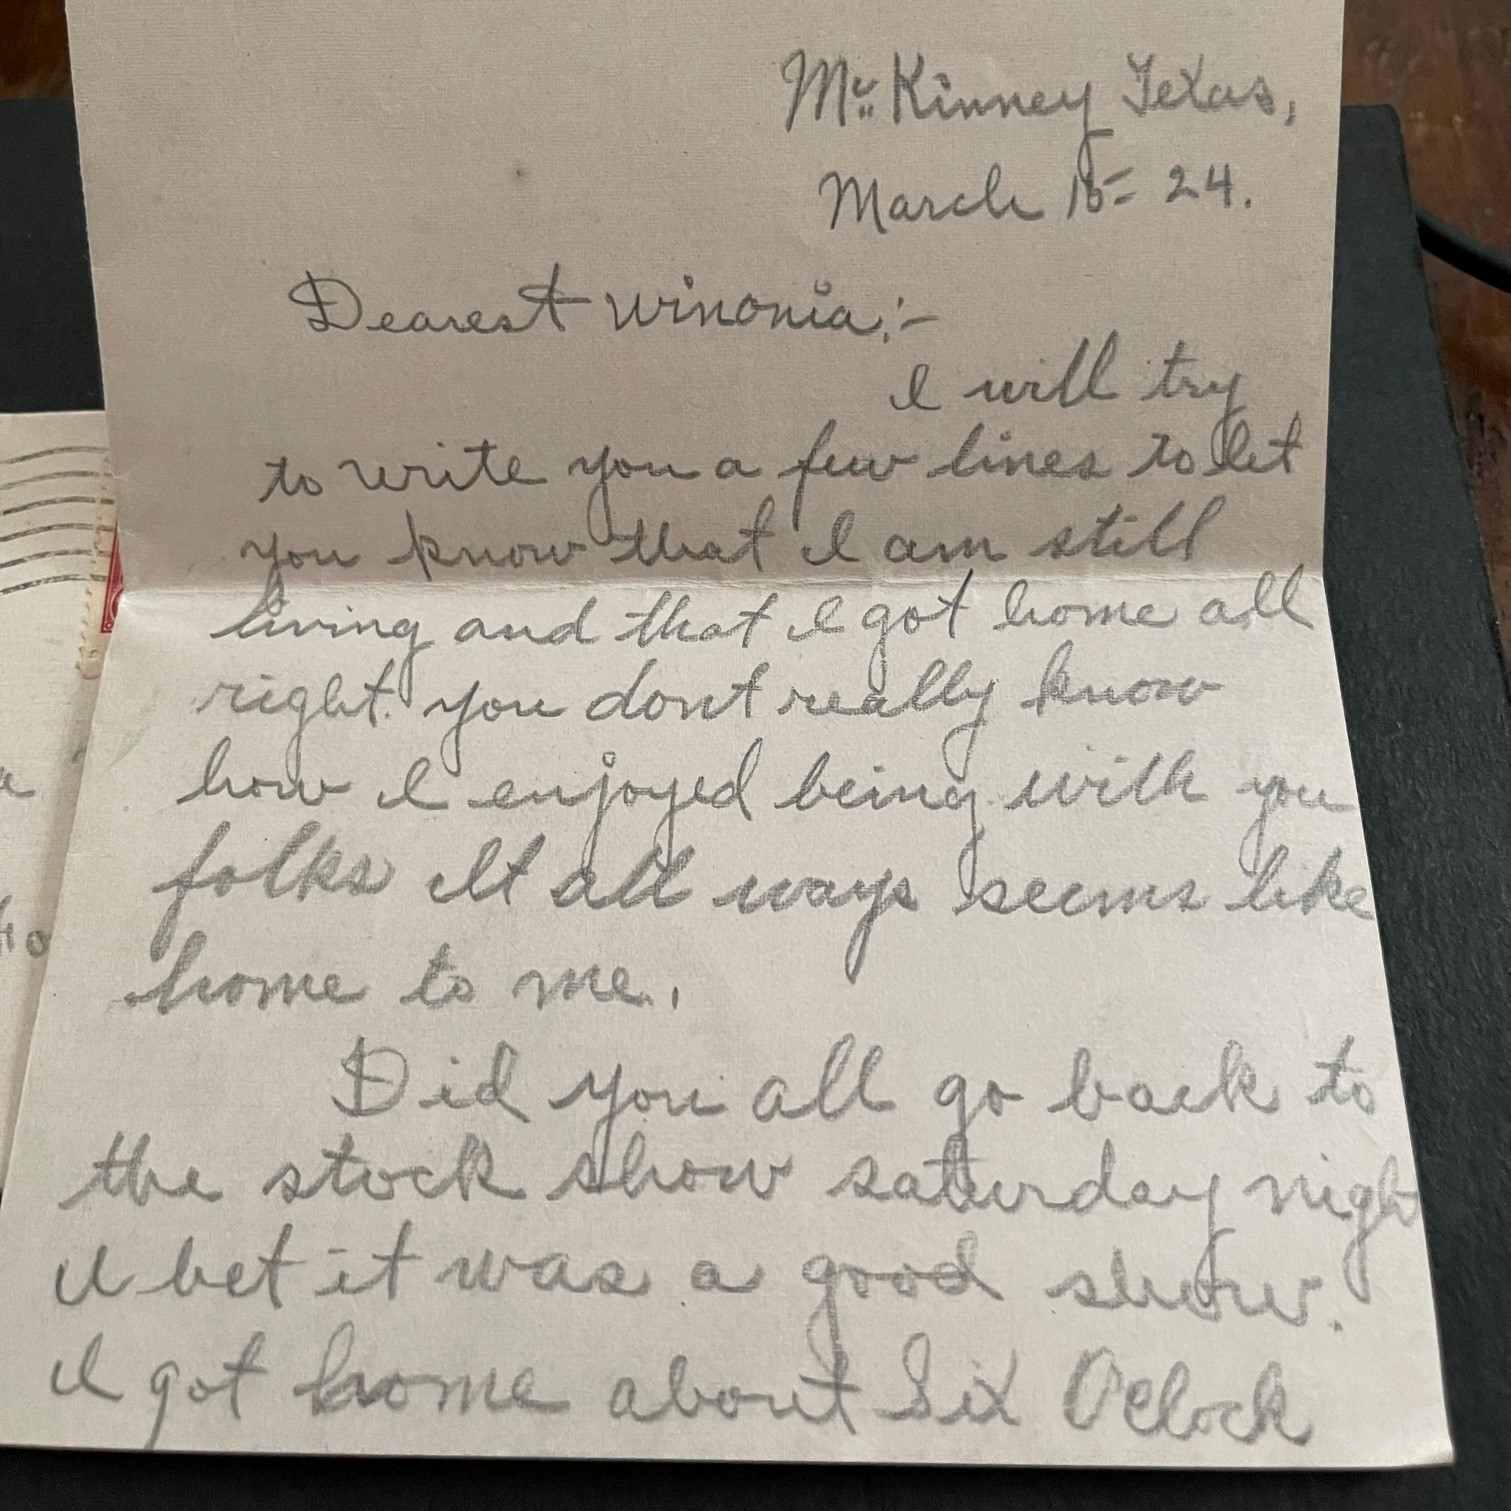 Mc Kinney Texas,
March 15= 24.
Dearest Winonia:-
I will try
to write you a few lines to let
you know that I am still
living and that I got home all
right. you dont really know
how I enjoyed being with you
folks It all ways seems like
home to me.
Did you all go back to
the stock show saturday nigh
I bet it was a good show.
I got home about Six O'clock